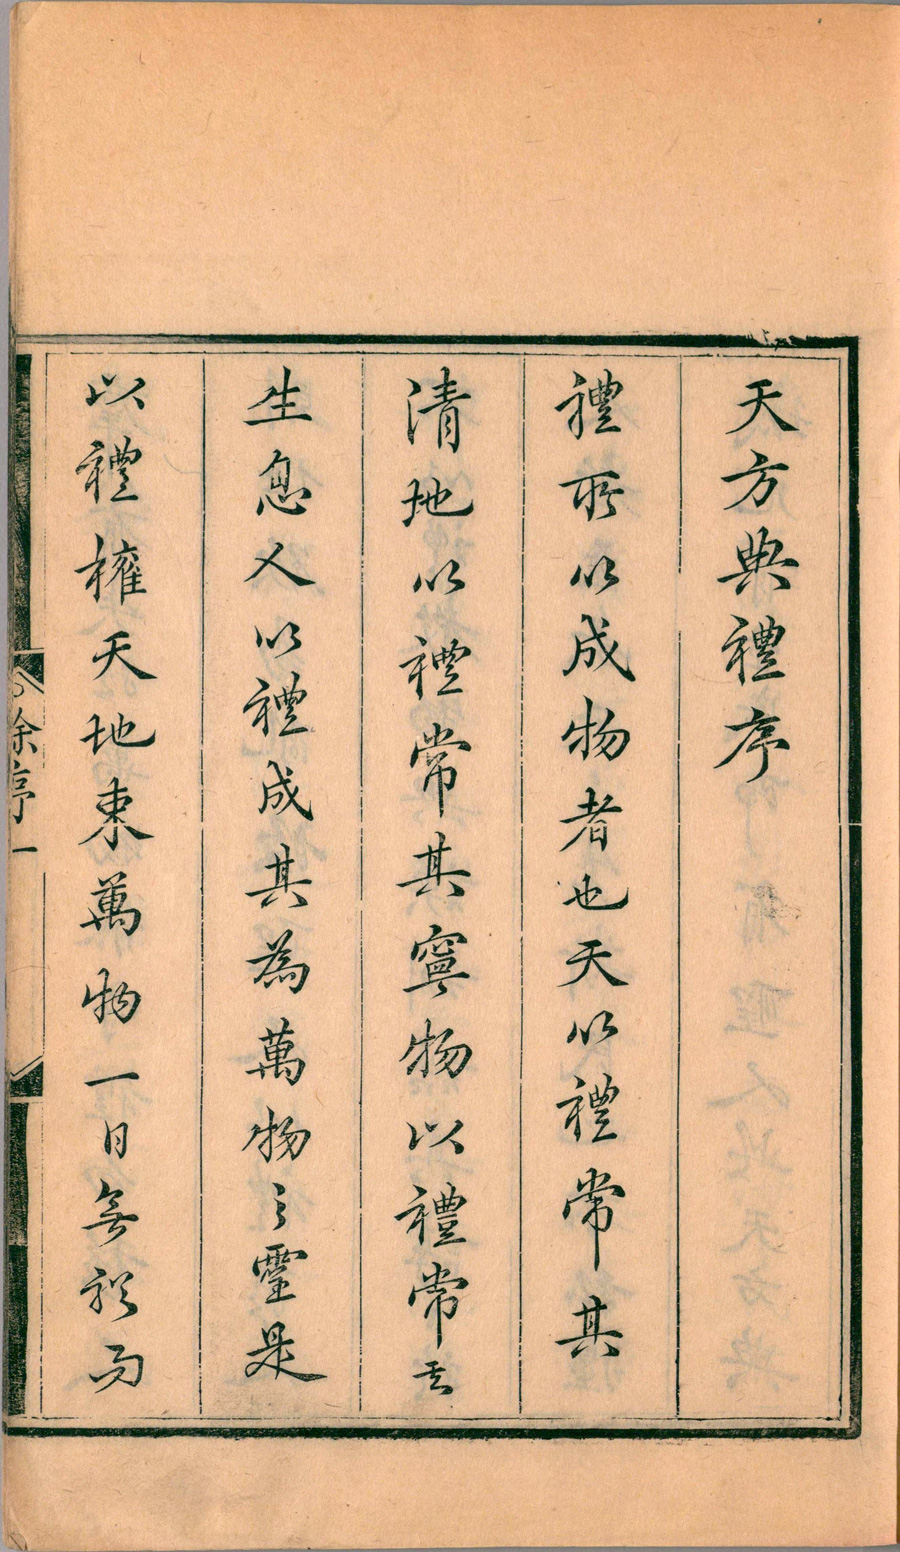 天方典禮序
禮所以成物者也天以禮常其
清地以禮常其寧物以禮常其
生息人以禮成其為萬物之靈是
以禮權天地束萬物一日無而
徐序 一